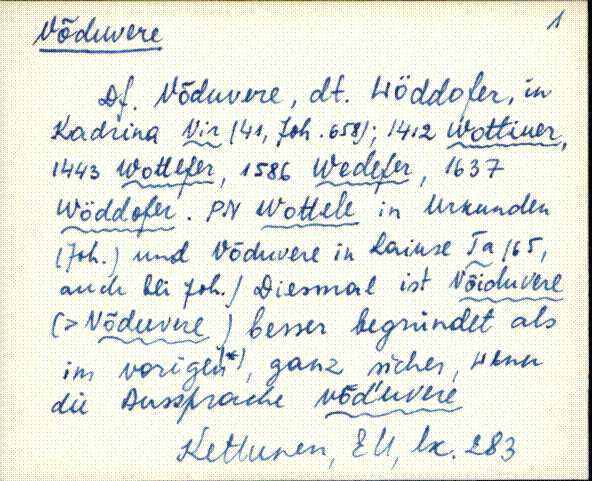 Võduvere 1
Df. Võduvere, dt. Wöddofer, in
Kadrina Vir (41, Joh. 658); 1412 Wottiuer,
1443 Wottefer, 1586 Wedefer, 1637
Wöddofer. PN Wottele in Urkunden
(Joh.) und Võduvere in Laiuse Ta (65,
auch bei Joh.) Diesmal ist Võiduvere
(> Võduvere) besser begründet als
im vorigen(*), ganz sicher, wenn
die Aussprache võd'uvere
Kettunen, EU, lk. 283